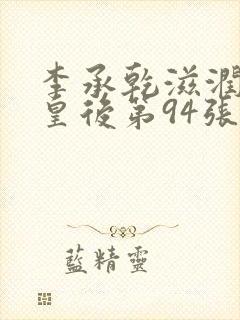 李承乾滋潤
皇後第94張
藍精靈